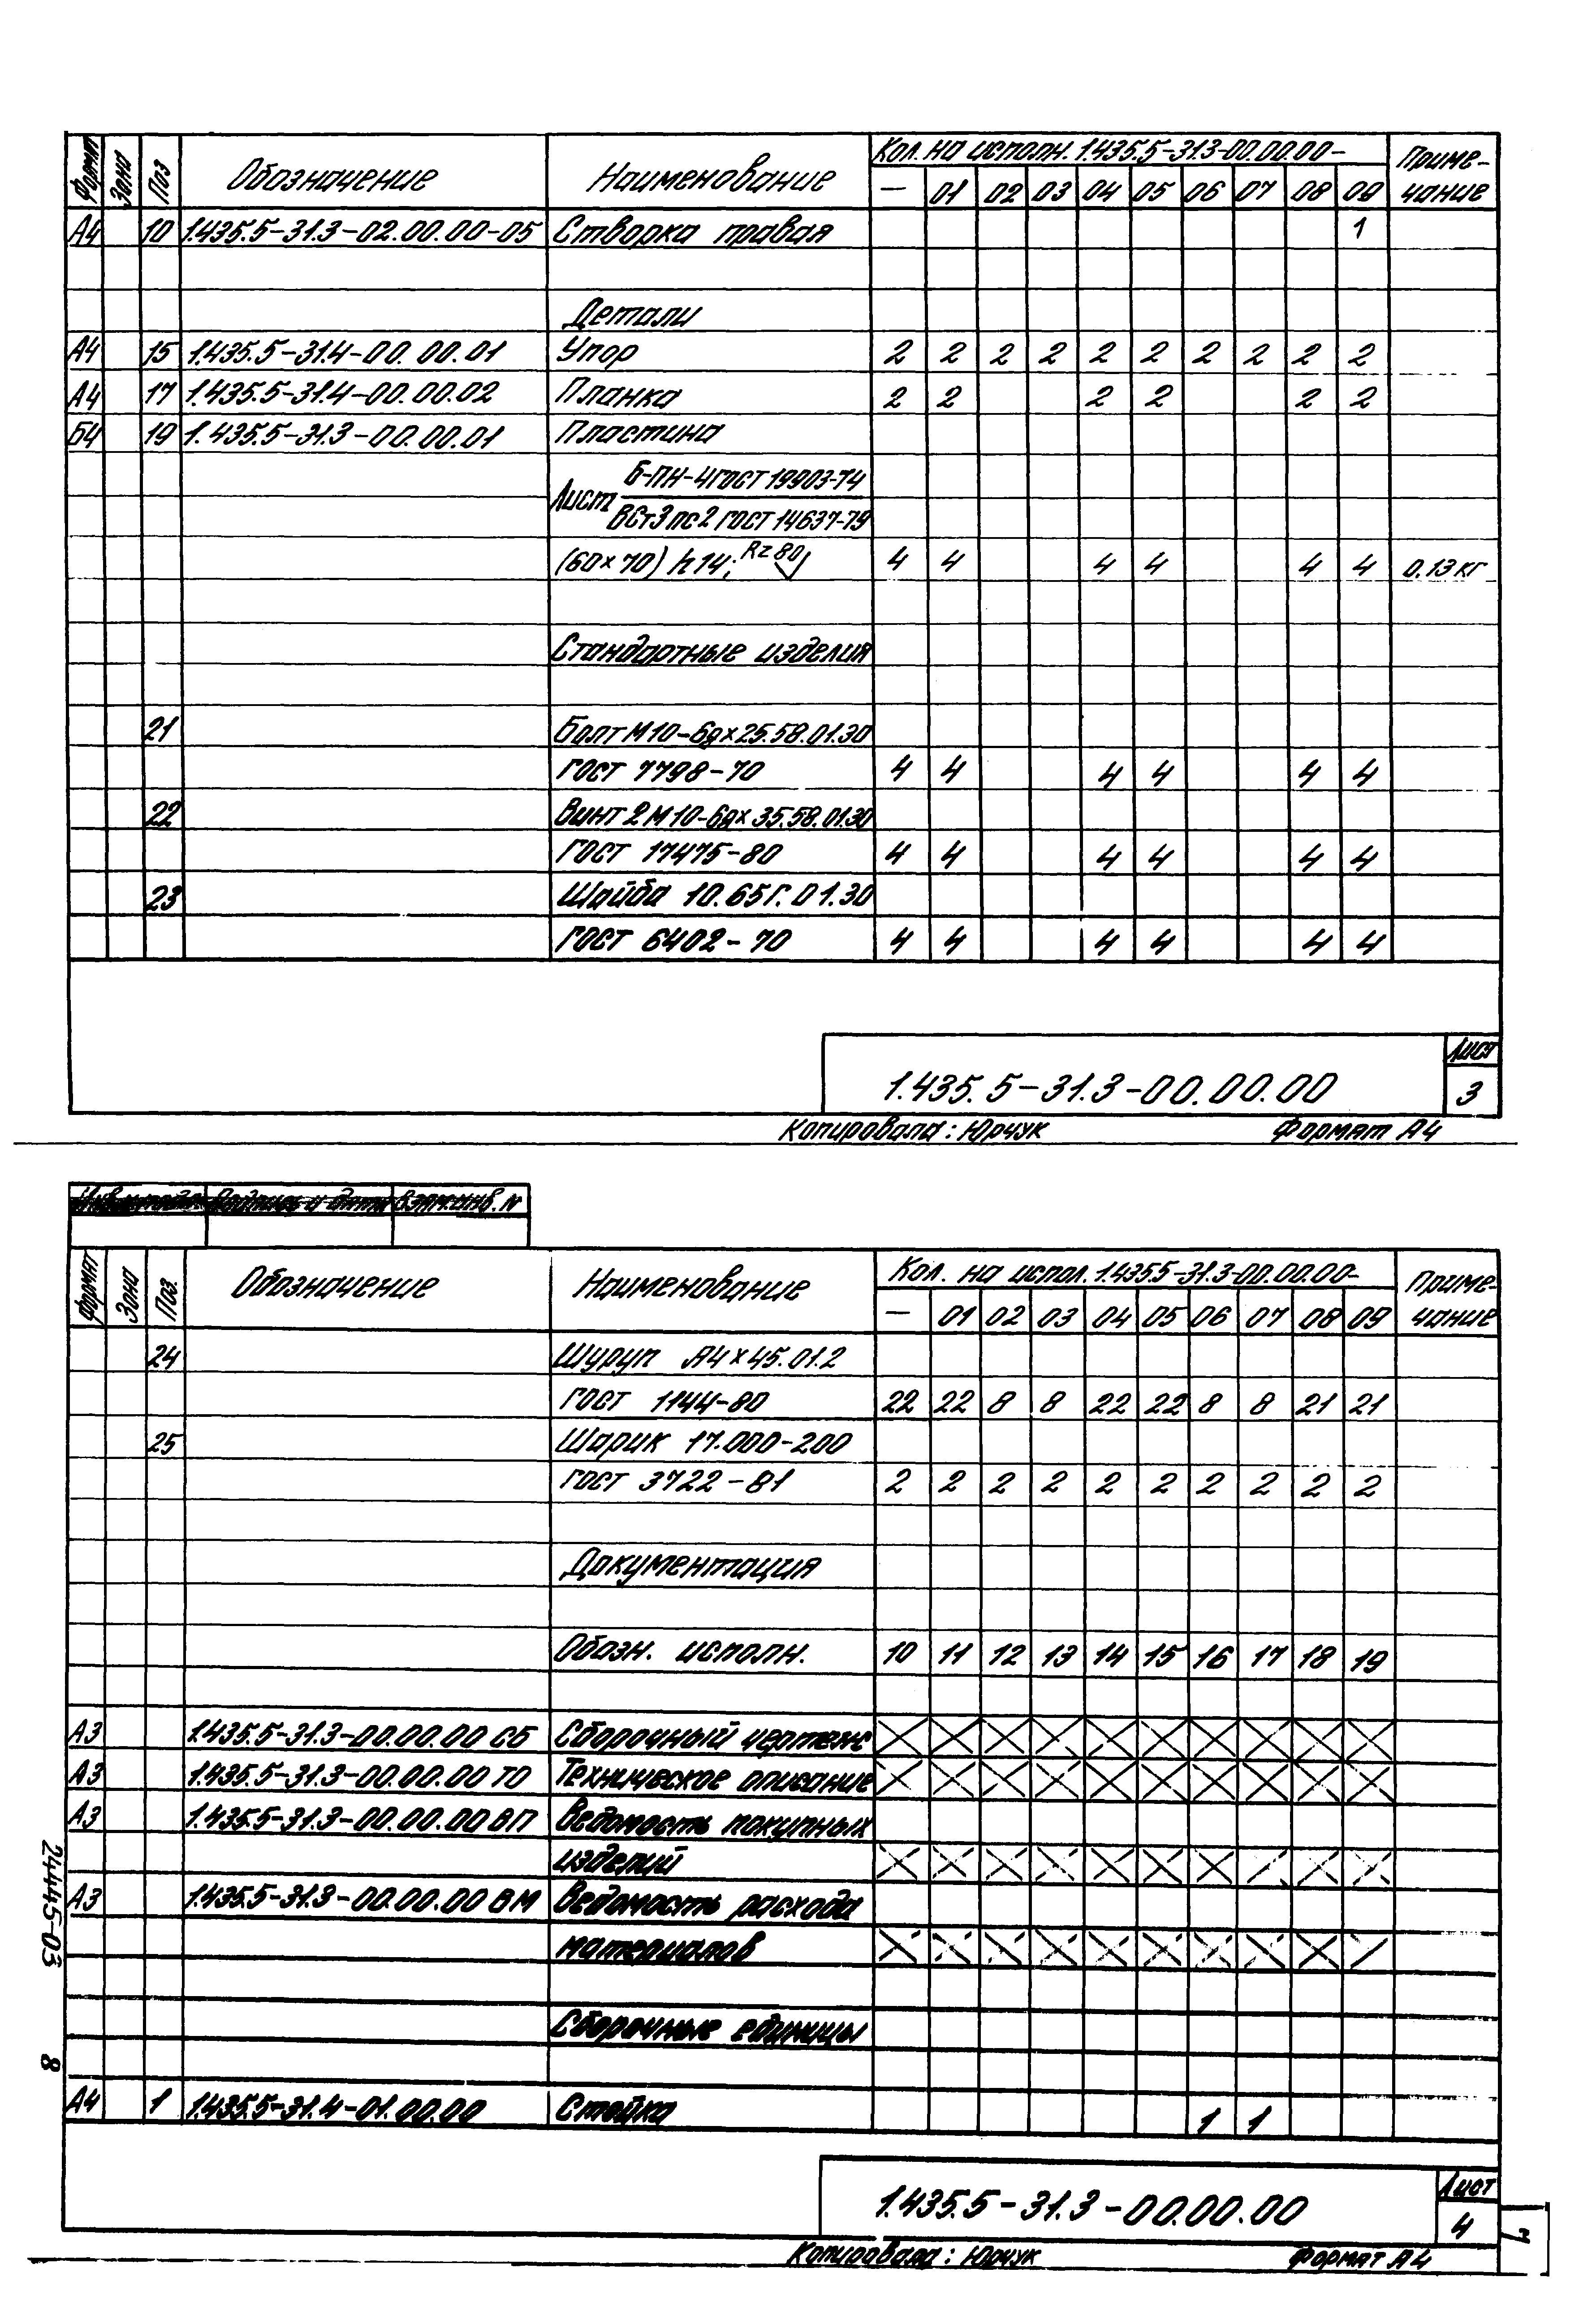 Формат Зона Поз Обозначение Наименование Кол. на исполн. 1.435.5-31.3-00.00.00- Приме-
— 01 02 03 04 05 06 07 08 09 чание
А4 10 1.435.5-31.3-02.00.00-05 Створка правая 1
Детали
А4 15 1.435.5-31.4-00.00.01 Упор 2 2 2 2 2 2 2 2 2 2
А4 17 1.435.5-31.4-00.00.02 Планка 2 2 2 2 2 2
Б4 19 1.435.5-31.3-00.00.01 Пластина
Б-ПН-4 ГОСТ 19903-74
Лист
ВСт3пс2 ГОСТ 14637-79
(60×70) h14; Rz 80 4 4 4 4 4 4 0.13 кг
Стандартные изделия
21 Болт М10-6g×25.58.01.30
ГОСТ 7798-70 4 4 4 4 4 4
22 Винт 2М10-6g×35.58.01.30
ГОСТ 17475-80 4 4 4 4 4 4
23 Шайба 10.65Г.01.30
ГОСТ 6402-70 4 4 4 4 4 4
1.435.5-31.3-00.00.00 Лист
3
Копировала: Юрчук Формат А4
Подпись и дата Взам.инв. N
Формат Зона Поз. Обозначение Наименование Кол. на испол. 1.435.5-31.3-00.00.00- Приме-
— 01 02 03 04 05 06 07 08 09 чание
24 Шуруп А4×45.01.2
ГОСТ 1144-80 22 22 8 8 22 22 8 8 21 21
25 Шарик 17.000-200
ГОСТ 3722-81 2 2 2 2 2 2 2 2 2 2
Документация
Обозн. исполн. 10 11 12 13 14 15 16 17 18 19
А3 1.435.5-31.3-00.00.00 СБ Сборочный чертеж
А3 1.435.5-31.3-00.00.00 ТО Техническое описание
А3 1.435.5-31.3-00.00.00 ВП Ведомость покупных
изделий
А3 1.435.5-31.3-00.00.00 ВМ Ведомость расхода
материалов
Сборочные единицы
А4 1 1.435.5-31.4-01.00.00 Стойка 1 1
1.435.5-31.3-00.00.00 Лист
4
Копировала: Юрчук Формат А4
24445-03 8